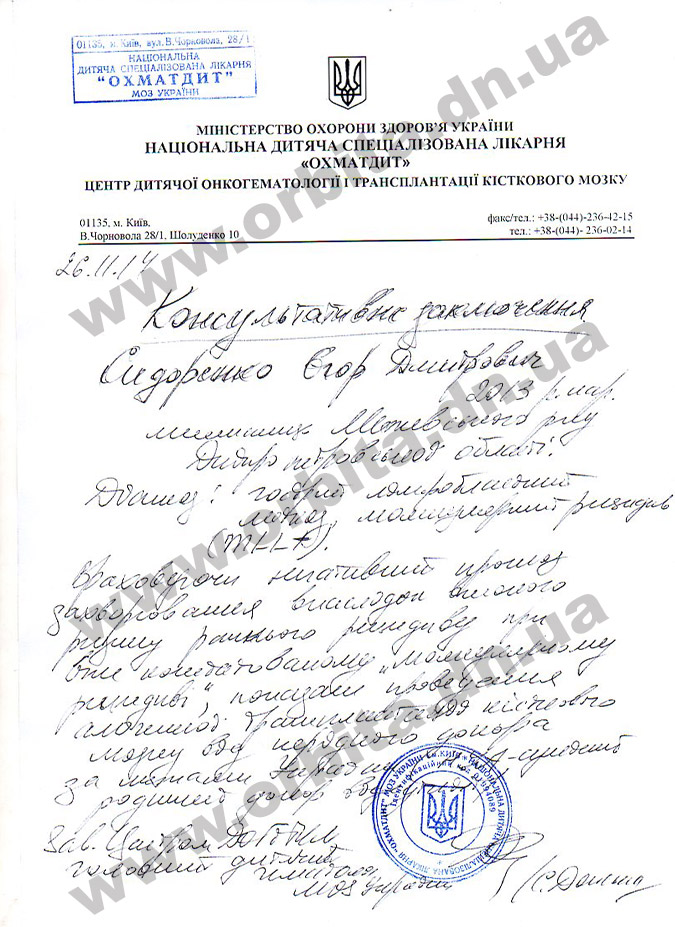 01135, м. Київ, вул. В.Чорновола, 28/1
НАЦІОНАЛЬНА
ДИТЯЧА СПЕЦІАЛІЗОВАНА ЛІКАРНЯ
"ОХМАТДИТ"
МОЗ УКРАЇНИ
МІНІСТЕРСТВО ОХОРОНИ ЗДОРОВ'Я УКРАЇНИ
НАЦІОНАЛЬНА ДИТЯЧА СПЕЦІАЛІЗОВАНА ЛІКАРНЯ
«ОХМАТДИТ»
ЦЕНТР ДИТЯЧОЇ ОНКОГЕМАТОЛОГІЇ І ТРАНСПЛАНТАЦІЇ КІСТКОВОГО МОЗКУ
01135, м. Київ,
В.Чорновола 28/1, Шолуденко 10
факс/тел.: +38-(044)-236-42-15
тел.: +38-(044)- 236-02-14
26.11.14
Консультативне заключення
Сидоренко Єгор Дмитрович
2013 р. нар.
Межевського р-ну
Дніпропетровської області.
Діагноз: гострий лімфобластний
лейкоз, молекулярний рецидив
(MLL+).
Враховуючи негативний прогноз
захворювання внаслідок високого
ризику раннього рецидиву при
вже констатованому "молекулярному
рецидиві", показане проведення
алогенної трансплантації кісткового
мозку від неродинного донора
за межами України,
родинний донор відсутній
Зав. Центром
головний дитячий
гематолог
МОЗ України
МОЗ УКРАЇНИ м.КИЇВ * НАЦІОНАЛЬНА ДИТЯЧА СПЕЦІАЛІЗОВАНА ЛІКАРНЯ "ОХМАТДИТ"
Ідентифікаційний код
www.orbita.dn.ua
www.orbita.dn.ua
www.orbita.dn.ua